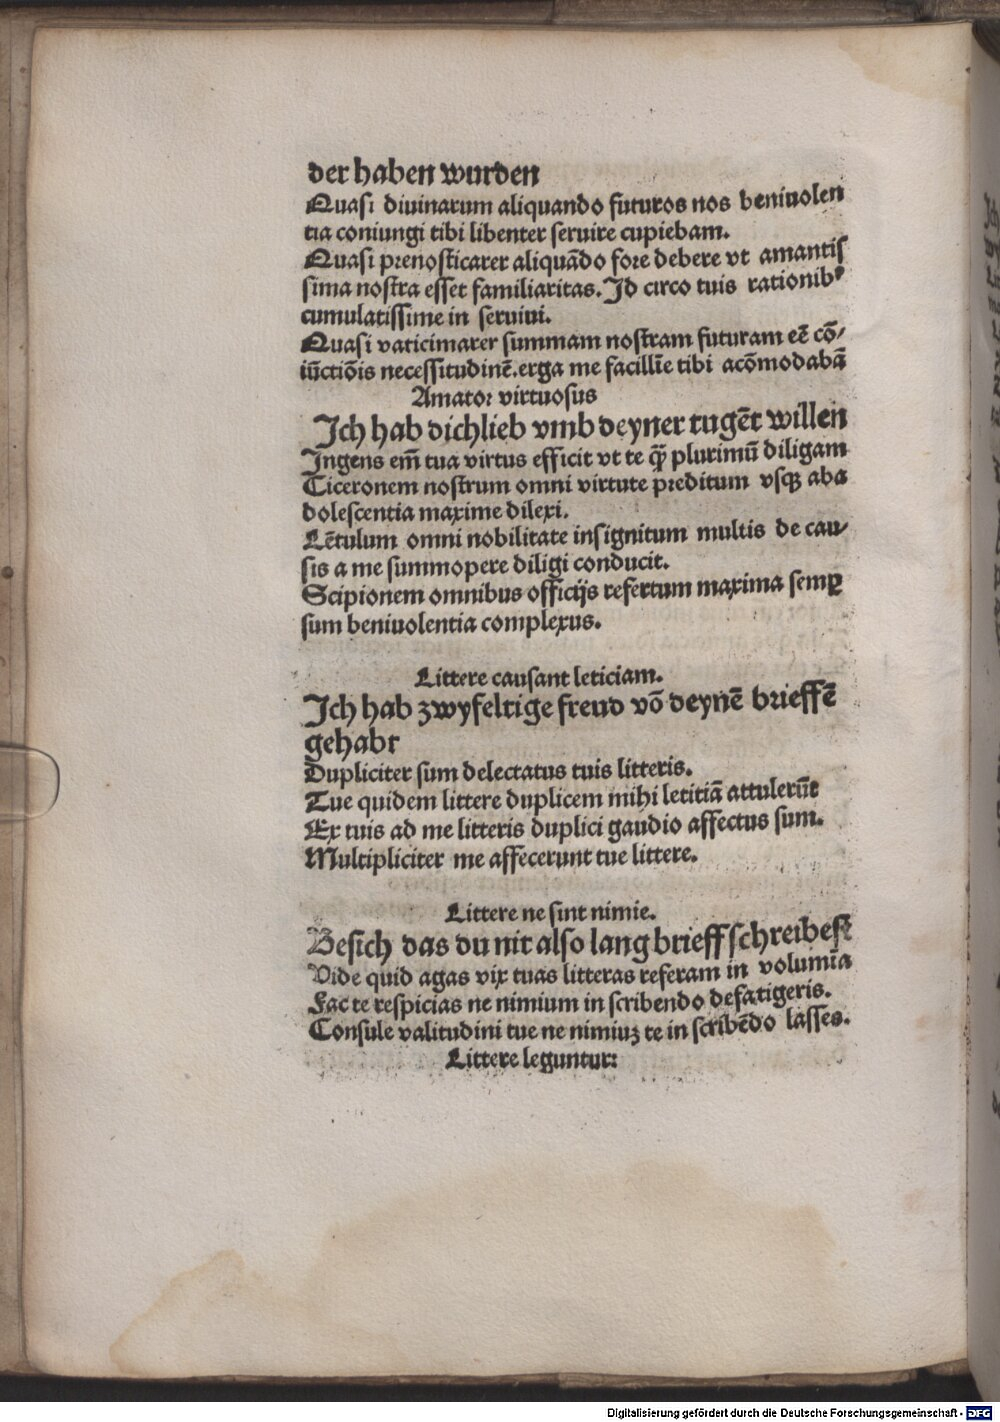 der haben wurden
Quasi diuinarum aliquando futuros nos beniuolen
tia coniungi tibi libenter seruire cupiebam.
Quasi prenosticarer aliquādo fore debere vt amantis
sima nostra esset familiaritas. Id circo tuis rationibꝰ
cumulatissime in seruiui.
Quasi vaticimarer summam nostram futuram eē cō/
iūctiōis necessitudinē. erga me facillīe tibi acōmodabā
Amator virtuosus
Ich hab dichlieb vmb deyner tugēt willen
Ingens em̄ tua virtus efficit vt te ꝙ̄ plurimū diligam
Ciceronem nostrum omni virtute preditum vsqꝫ aba
dolescentia maxime dilexi.
Lētulum omni nobilitate insignitum multis de cau/
sis a me summopere diligi conducit.
Scipionem omnibus officijs refertum maxima semꝑ
sum beniuolentia complexus.
Littere causant leticiam.
Ich hab zwyfeltige freud vō deynē brieffē
gehabt
Dupliciter sum delectatus tuis litteris.
Tue quidem littere duplicem mihi letitiā attulerūt
Ex tuis ad me litteris duplici gaudio affectus sum.
Multipliciter me affecerunt tue littere.
Littere ne sint nimie.
Besich das du nit also lang brieff schreibest
Vide quid agas vix tuas litteras referam in volumīa
Fac te respicias ne nimium in scribendo defatigeris.
Consule valitudini tue ne nimiuꝫ te in scribēdo lasses.
Littere leguntur:
Digitalisierung gefördert durch die Deutsche Forschungsgemeinschaft - DFG